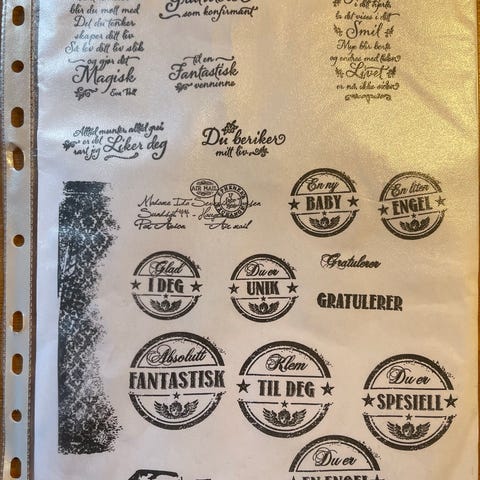 blir du møtt med
Det du tenker
skaper ditt liv
Så lev ditt liv slik
og gjør det
Magisk
som konfirmant
til en
Fantastisk
venninne
i ditt hjerte
la det vises i ditt
Smil
Mye blir borte
og endres med tiden
Livet
er nå, ikke siden
Alltid munter alltid grei
er det
rart jeg Liker deg
Du beriker
mitt liv
AIR MAIL
Madame Ida
Par Avion
Air mail
En ny
BABY
En liten
ENGEL
Glad
I DEG
Du er
UNIK
Gratulerer
GRATULERER
Absolutt
FANTASTISK
Klem
TIL DEG
Du er
SPESIELL
Du er
EN ENGEL